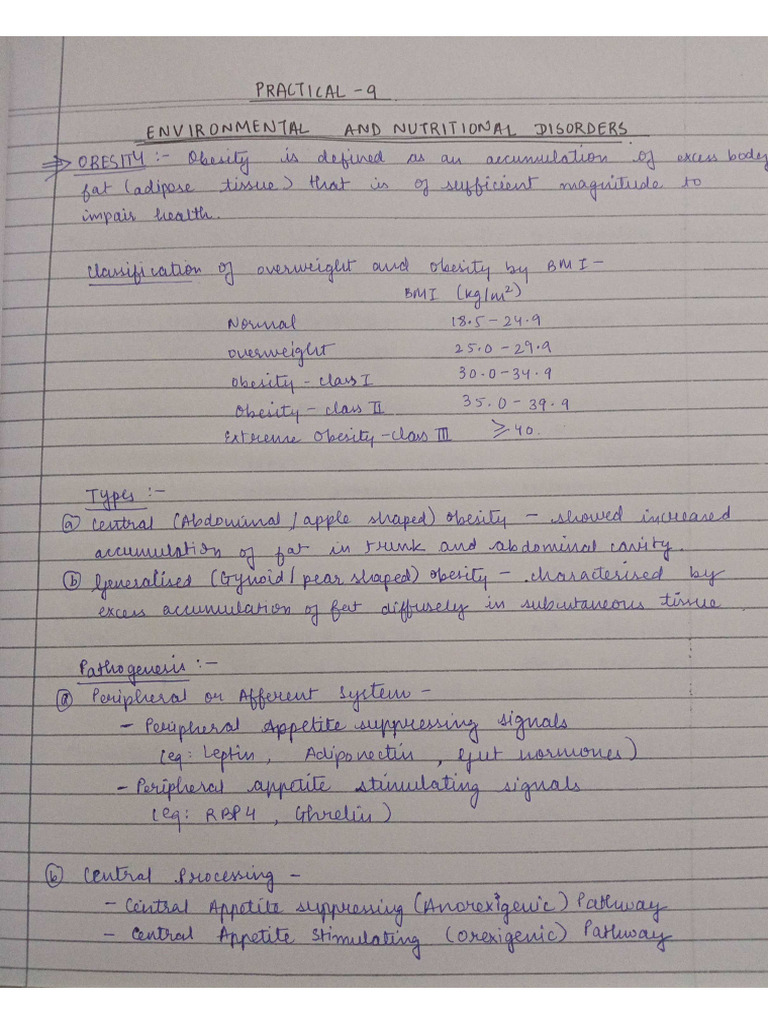 PRACTICAL - 9
ENVIRONMENTAL AND NUTRITIONAL DISORDERS
⇒ OBESITY :- Obesity is defined as an accumulation of excess body
fat (adipose tissue) that is of sufficient magnitude to
impair health.
Classification of overweight and obesity by BMI -
BMI (kg/m²)
Normal 18.5 - 24.9
overweight 25.0 - 29.9
Obesity - class I 30.0 - 34.9
Obesity - class II 35.0 - 39.9
Extreme Obesity - class III ≥ 40.
Types :-
(a) Central (Abdominal / apple shaped) obesity - showed increased
accumulation of fat in trunk and abdominal cavity.
(b) Generalised (Gynoid / pear shaped) obesity - characterised by
excess accumulation of fat diffusely in subcutaneous tissue
Pathogenesis :-
(a) Peripheral or Afferent System -
- Peripheral Appetite suppressing signals
(eg: Leptin, Adiponectin, Gut hormones)
- Peripheral appetite stimulating signals
(eg: RBP4, Ghrelin)
(b) Central Processing -
- Central Appetite suppressing (Anorexigenic) Pathway
- Central Appetite Stimulating (Orexigenic) Pathway